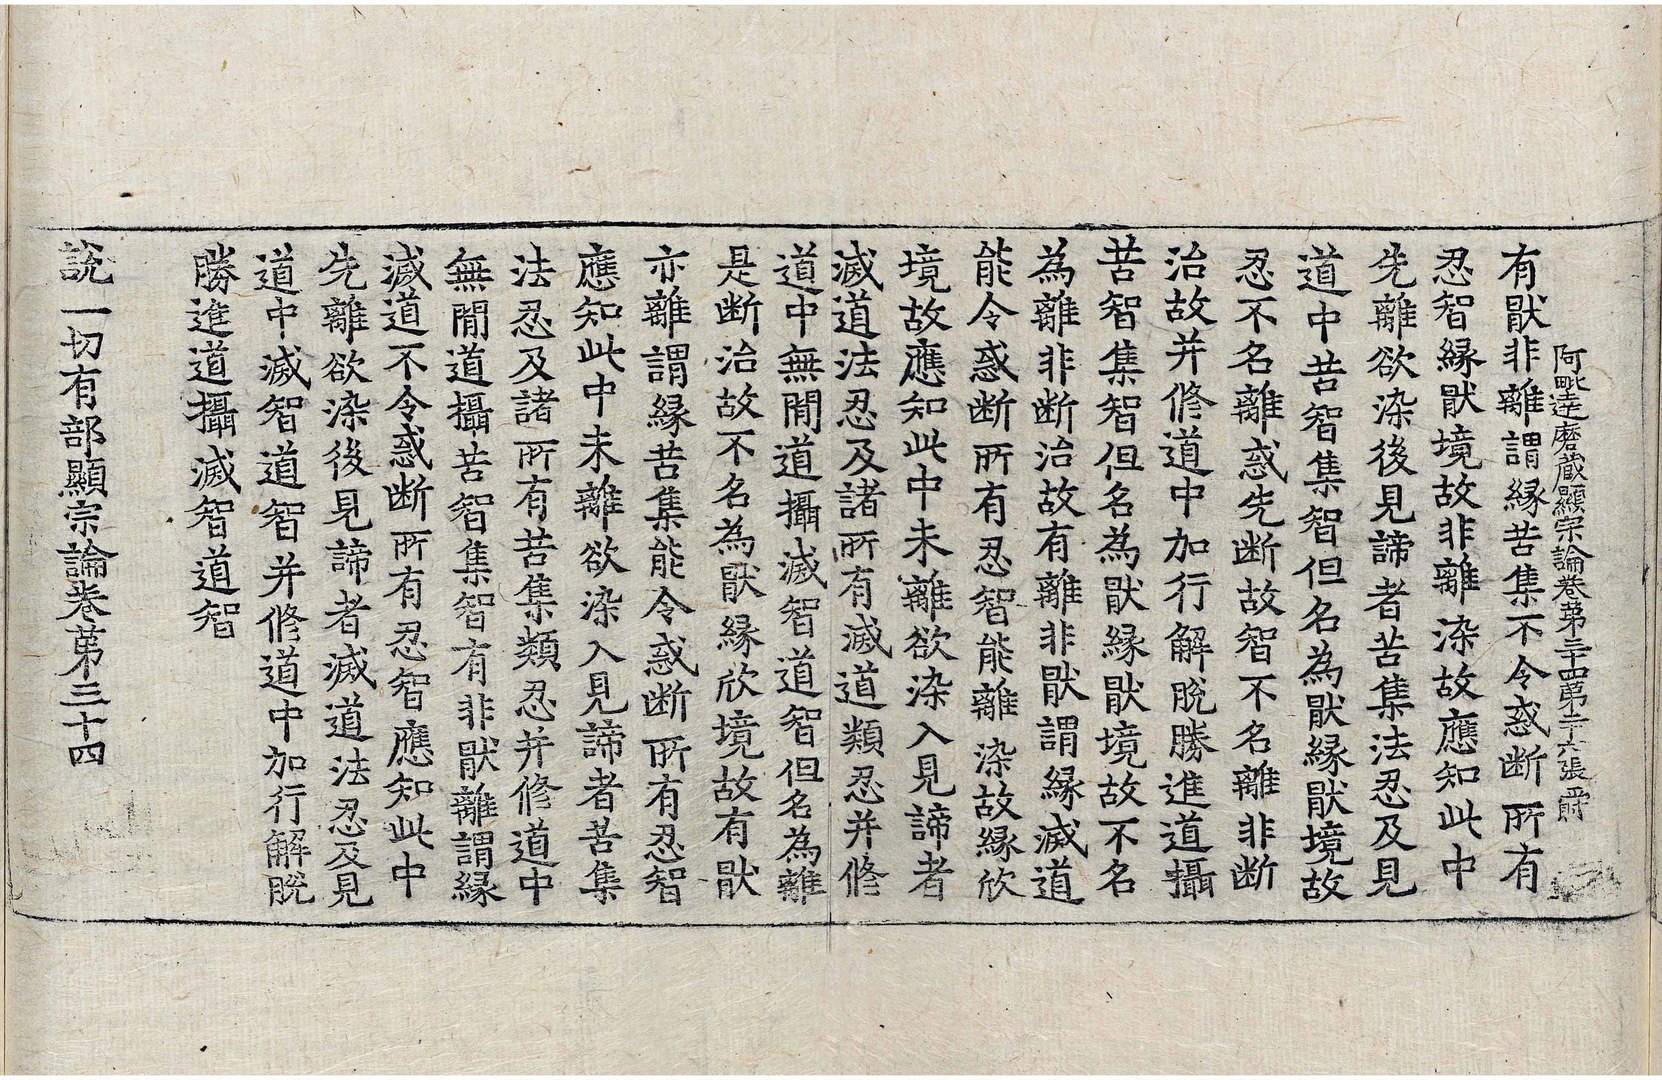 阿毗達磨藏顯宗論卷第三十四第二十六張 爵
有猒非離謂緣苦集不令惑断所有
忍智緣猒境故非離染故應知此中
先離欲染後見諦者苦集法忍及見
道中苦智集智但名為猒緣猒境故
忍不名離惑先断故智不名離非断
治故并修道中加行解脫勝進道攝
苦智集智但名為猒緣猒境故不名
為離非断治故有離非猒謂緣滅道
能令惑断所有忍智能離染故緣欣
境故應知此中未離欲染入見諦者
滅道法忍及諸所有滅道類忍并修
道中無閒道攝滅智道智但名為離
是断治故不名為猒緣欣境故有猒
亦離謂緣苦集能令惑断所有忍智
應知此中未離欲染入見諦者苦集
法忍及諸所有苦集類忍并修道中
無閒道攝苦智集智有非猒離謂緣
滅道不令惑断所有忍智應知此中
先離欲染後見諦者滅道法忍及見
道中滅智道智并修道中加行解脫
勝進道攝滅智道智
說一切有部顯宗論卷第三十四